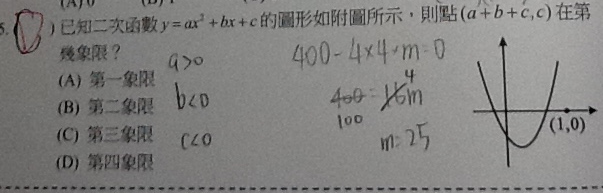 5.(D)已知二次函數 y=ax²+bx+c 的圖形如附圖所示，則點 (a+b+c,c) 在第
幾象限？
(A) 第一象限
(B) 第二象限
(C) 第三象限
(D) 第四象限
a>0
b<0
c<0
400-4×4×m=0
400=16m
4
100
m=25
(1,0)